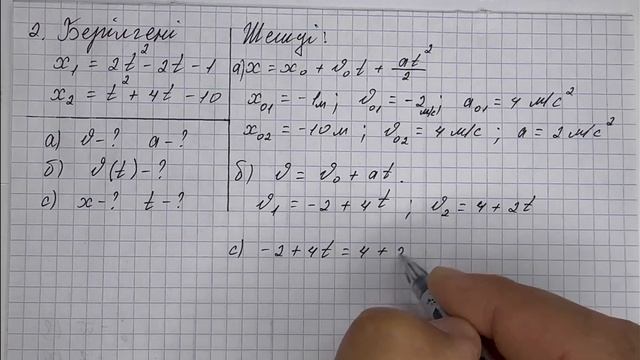 2. Берілгені
x₁ = 2t² - 2t - 1
x₂ = t² + 4t - 10
а) ϑ - ? a - ?
б) ϑ(t) - ?
с) x - ? t - ?
Шешуі:
а) x = x₀ + ϑ₀t + at²/2
x₀₁ = -1м; ϑ₀₁ = -2 м/с; a₀₁ = 4 м/с²
x₀₂ = -10 м; ϑ₀₂ = 4 м/с; a = 2 м/с²
б) ϑ = ϑ₀ + at.
ϑ₁ = -2 + 4t; ϑ₂ = 4 + 2t
с) -2 + 4t = 4 +